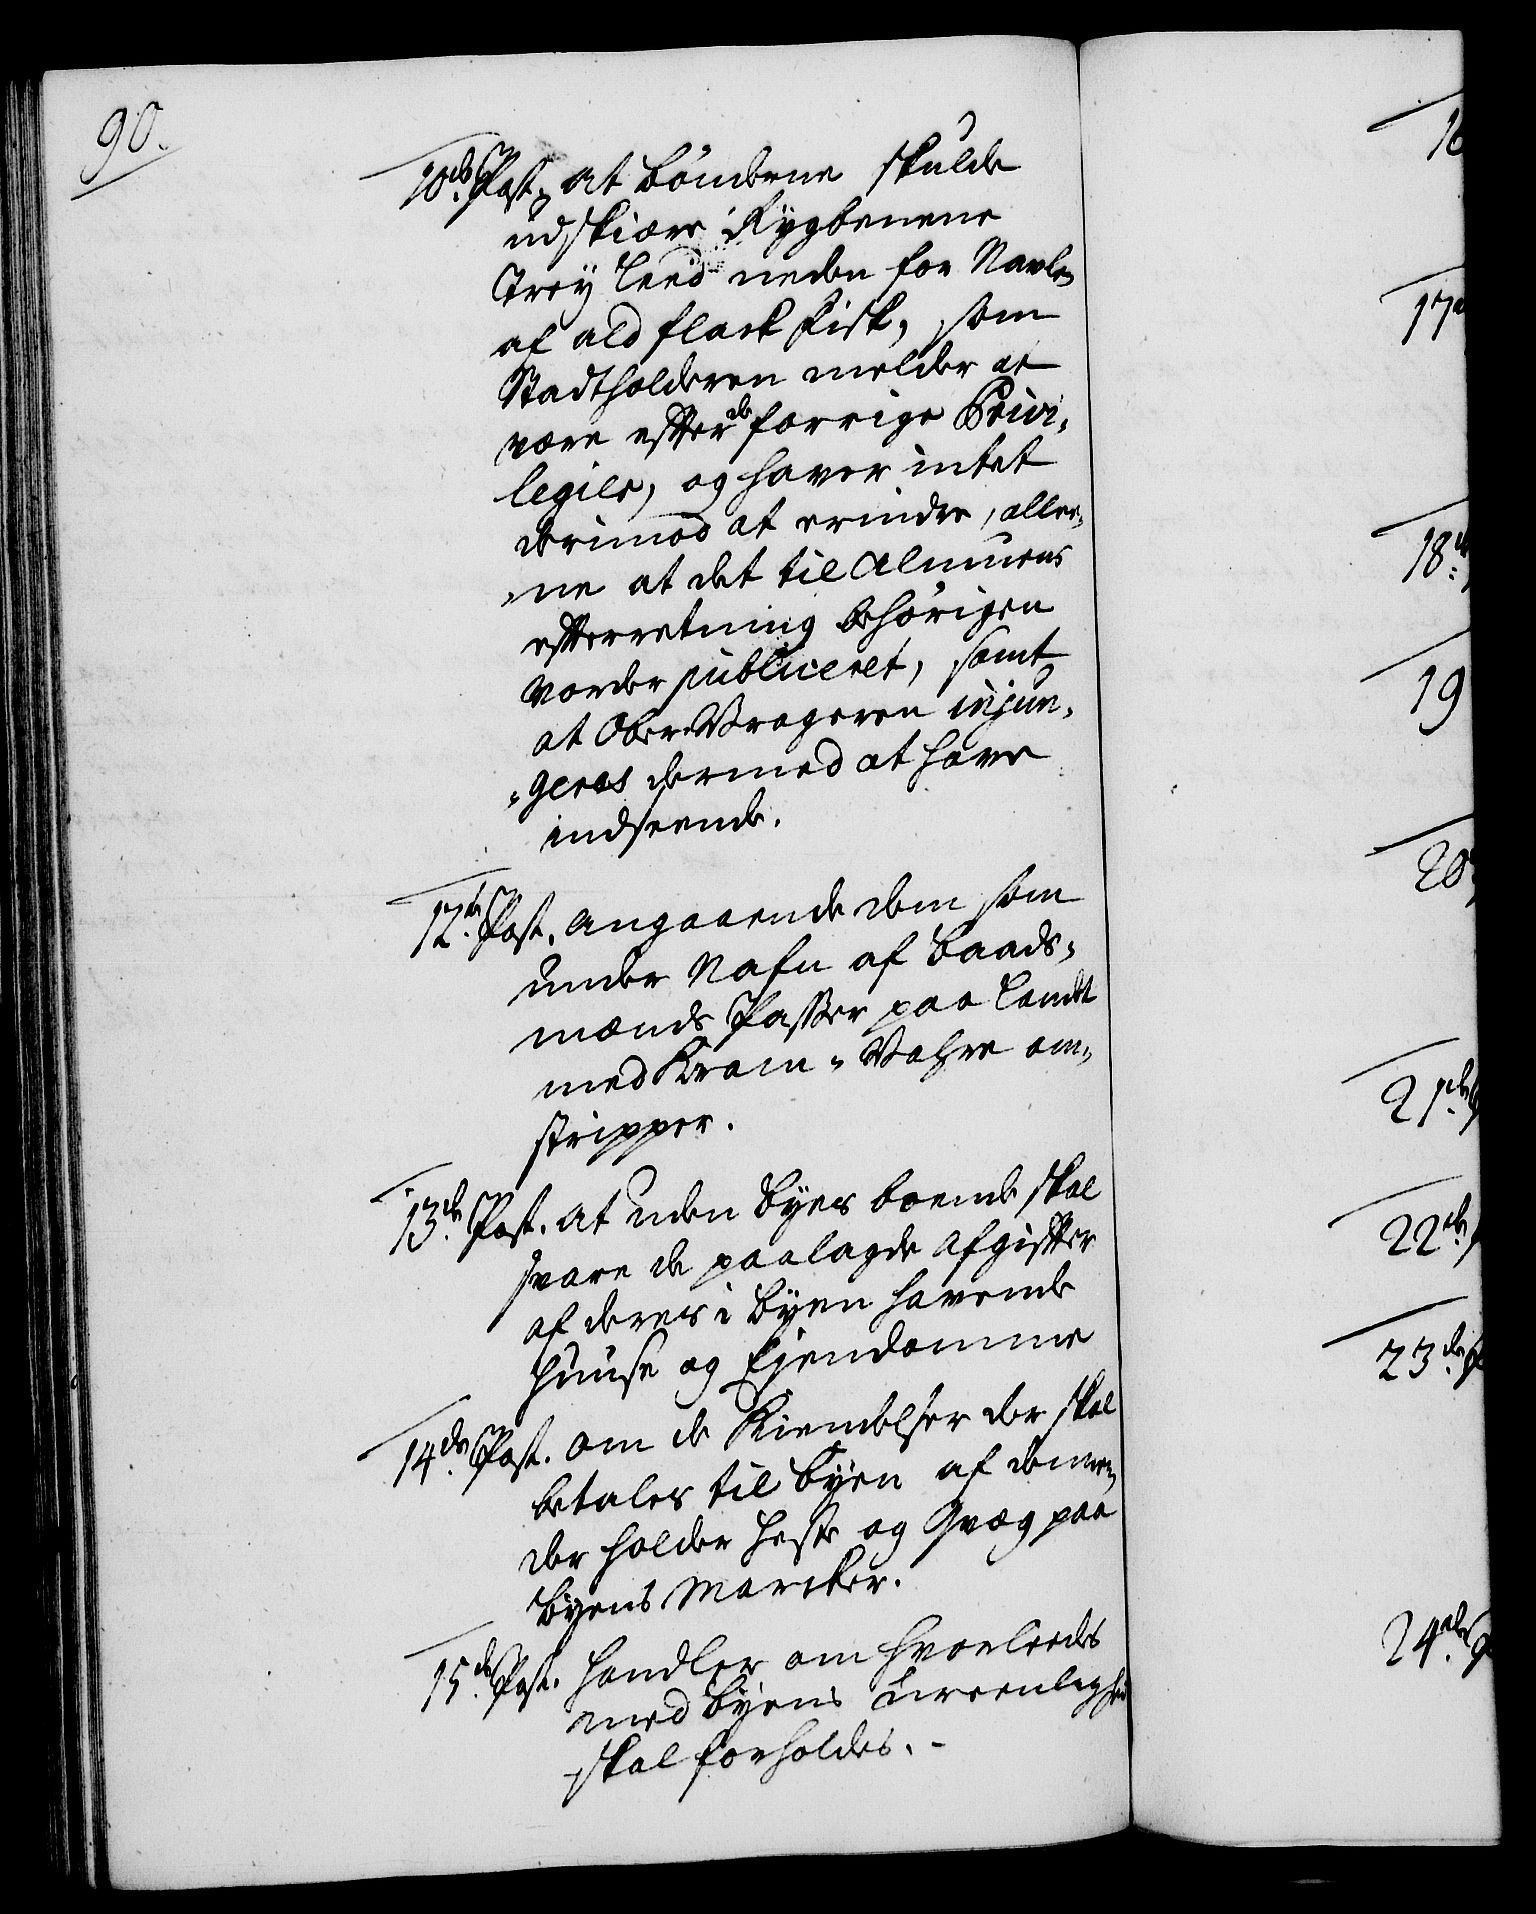 90.
10de Post, at bönderne skulde
udskiære Rygbenene
trey Leed neden for Navlen
af ald flack Fisk, som
Stadtholderen melder at
være efter de forrige Privi-
legier, og haver intet
derimod at erindre, alle-
-ne at det til Almuens
efterretning behörigen
vorder publiceret, samt
at Ober-Vrageren injun-
-geres dermed at have
indseende.
12te Post. angaaende dem som
under Nafn af Baads-
mænds Passer paa Landet
med Kram-Vahre om-
stripper.
13de Post. at uden Byes boende skal
svare de paalagde Afgifter
af deres i Byen havende
Huuse og Ejendomme
14de Post. om de Kiendelser der skal
betales til Byen af dennem
der holder Heste og Qvæg paa
Byens Marcker.
15de Post. handler om hvorleedes
med Byens Ureenlighed
skal forholdes.
17
18de
19
20
21de
22de
23de
24de